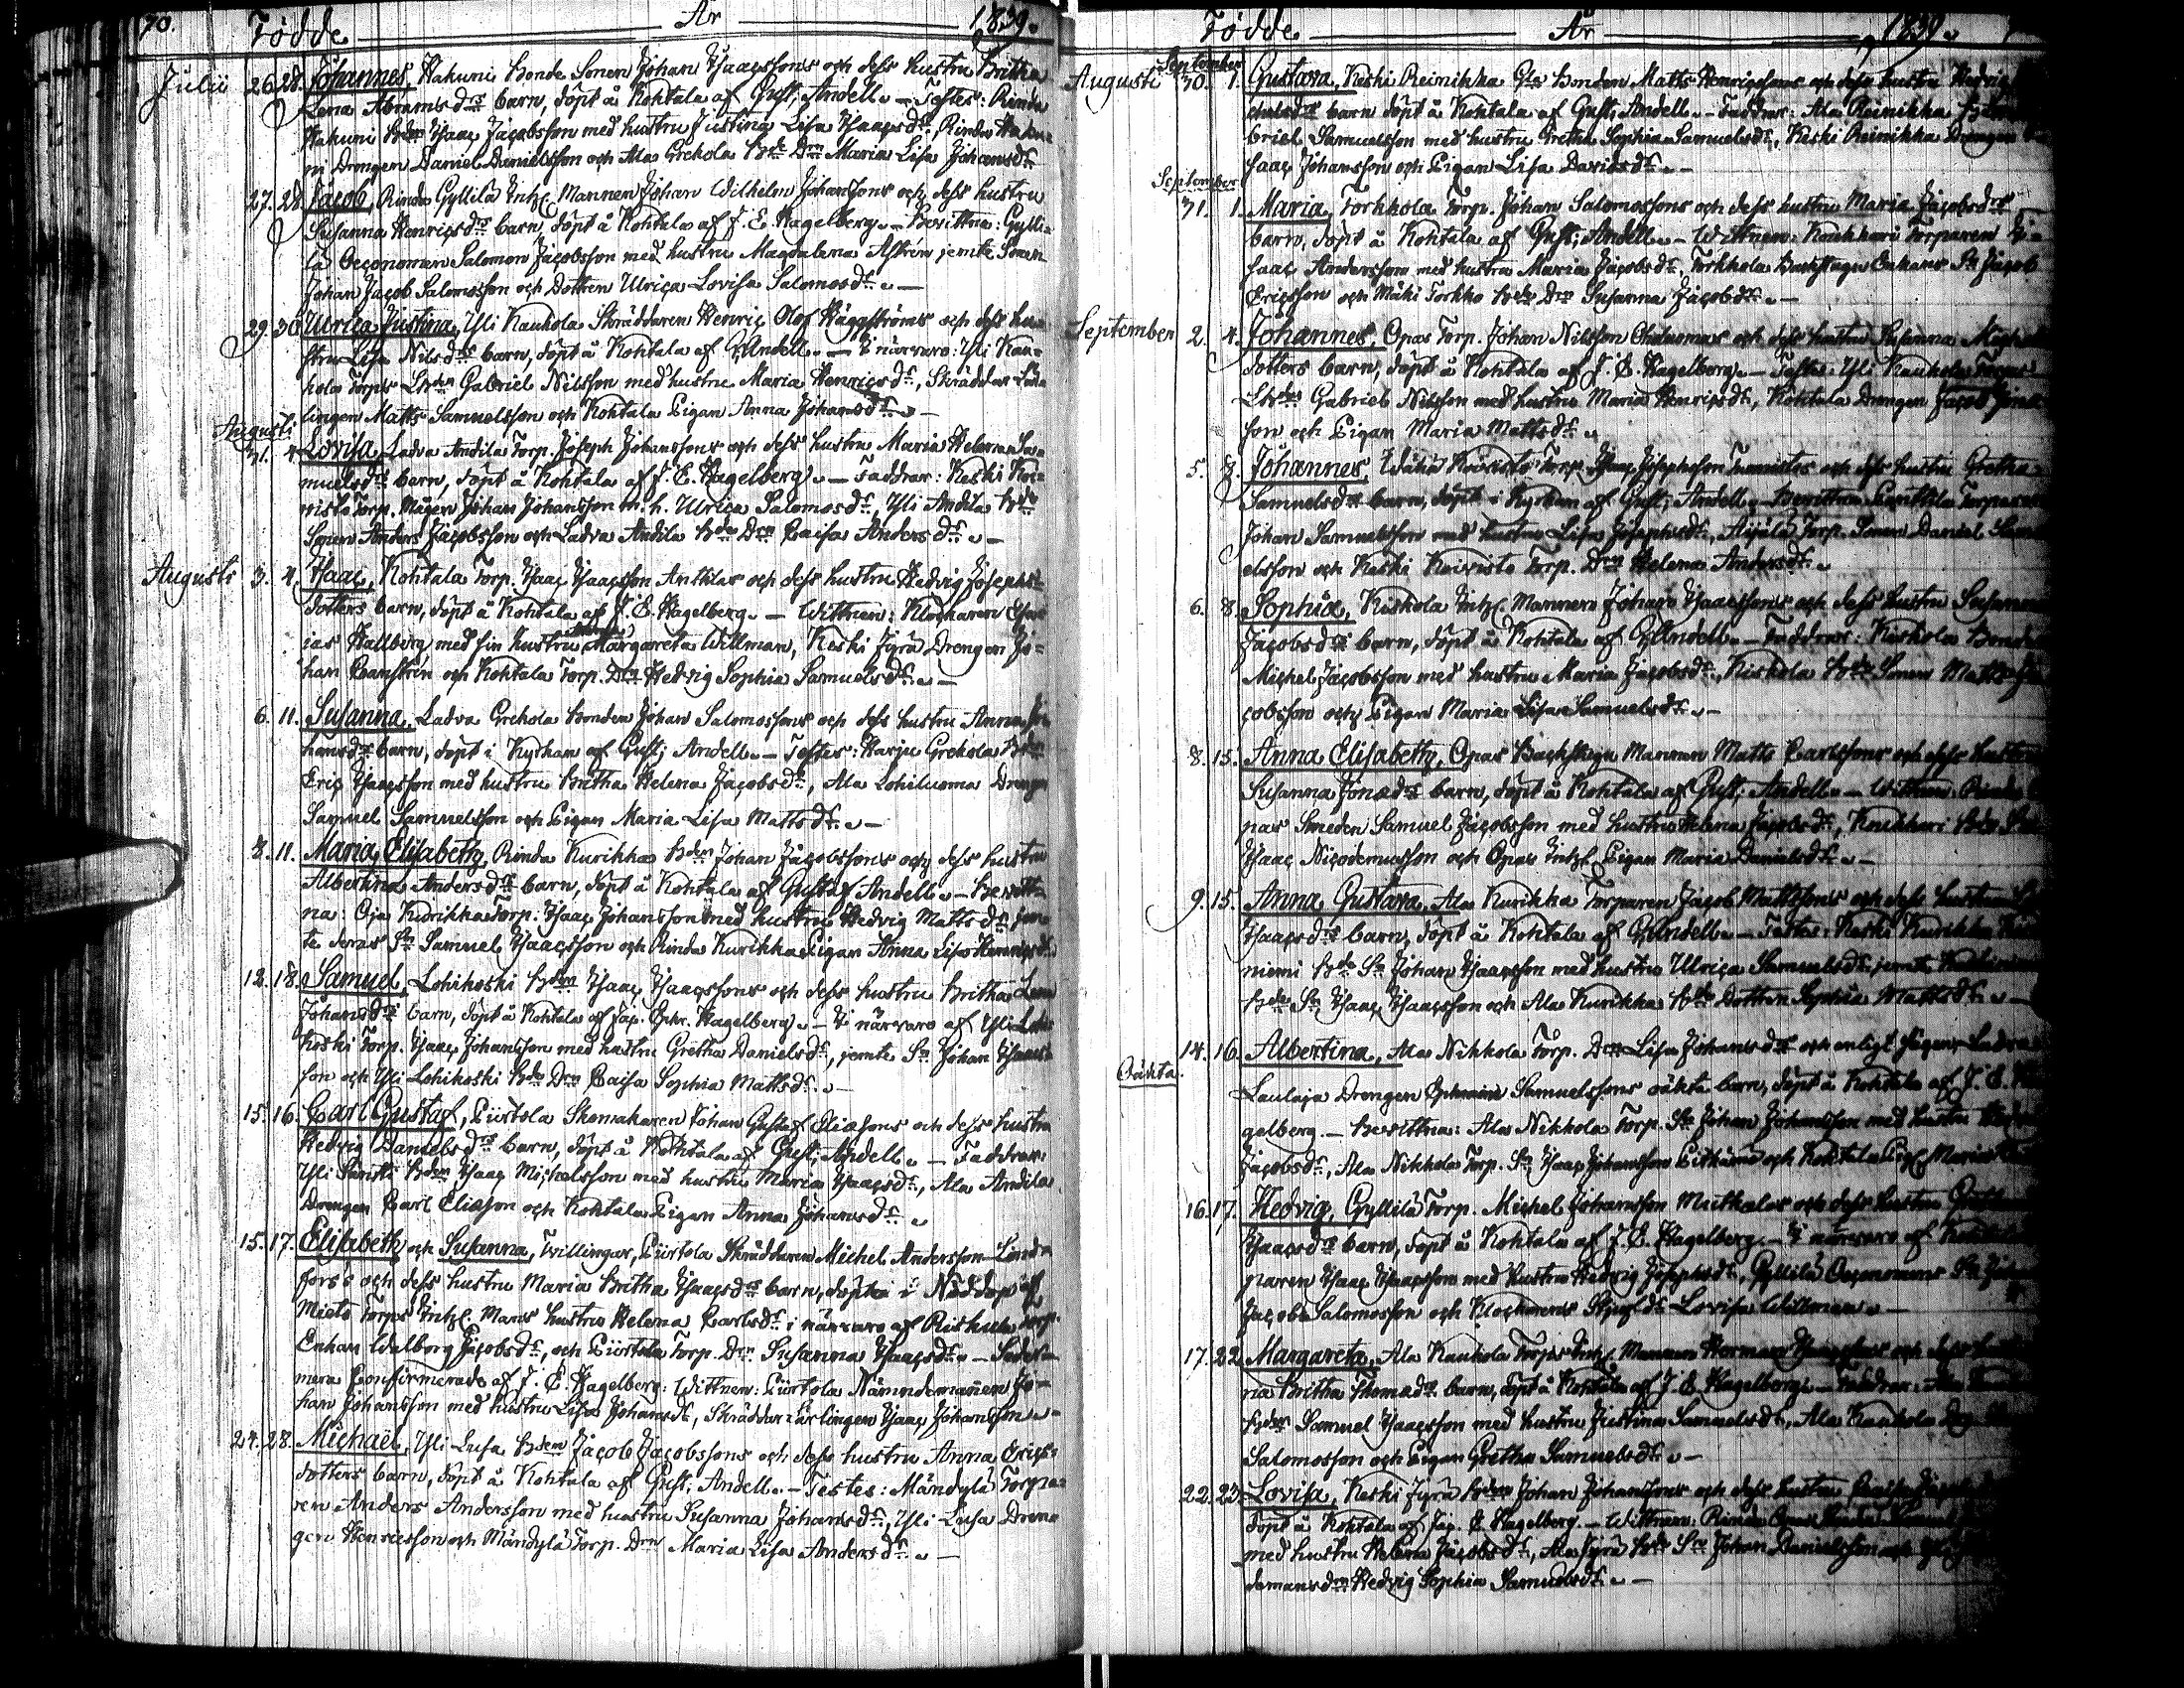 70. Födde År 1839.
Julii 26. 28. Johannes, Hakuni Bonde Sonen Johan Isaacssons och dess hustru Britha
Lena Abramsdrs barn, döpt å Kohtala af Gust. Andell. — Testes: Rinda
Hakuni Bden Isaac Jacobsson med hustru Justina Lisa Isaacsdr, Rinda Haku-
ni Drengen Daniel Danielsson och Ala Grekola Bde Drn Maria Lisa Johansdr
27. 28. Jacob, Rinda Gyllilä Inhs. Mannen Johan Wilhelm Johanssons och dess hustru
Susanna Henricsdrs barn, döpt å Kohtala af J. E. Hagelberg. — Bevittna: Gylli-
lä Oeconomen Salomon Jacobsson med hustru Magdalena Astrén jemte Sonen
Johan Jacob Salomosson och Dottren Ulrica Lovisa Salomosdr. —
29. 30. Ulrica Justina, Yli Kauhola Skräddaren Henric Olof Häggströms och dess hu-
stru Lisa Nilsdrs barn, döpt å Kohtala af G. Andell. — I närvaro: Yli Kau-
hola Torps Gabriel Nilsson med hustru Maria Henricsdr, Skräddar Lär-
lingen Matts Samuelsson och Kohtala Pigan Anna Johansdr. —
Augusti
31. 4. Lovisa, Ladva Andila Torp. Joseph Johanssons och dess hustru Maria Helena Sa-
muelsdrs barn, döpt å Kohtala af J. E. Hagelberg. — Faddrar: Keski Koi-
visto Torp. Mågen Johan Johansson m. h. Ulrica Salomosdr, Yli Andila Bde
Sonen Anders Jacobsson och Ladva Andila Bde Drn Caisa Andersdr. —
Augusti 3. 4. Isaac, Kohtala Torp. Isaac Isaacsson Anttilas och dess hustru Hedvig Josephs-
dotters barn, döpt å Kohtala af J. E. Hagelberg. — Wittnen: Klockaren Esa-
ias Hallberg med sin hustru Margareta Willman, Keski Jyrä Drengen Jo-
han Ramström och Kohtala Torp. Drn Hedvig Sophia Samuelsdr. —
6. 11. Susanna, Ladva Grekola Bonden Johan Salomossons och dess hustru Anna Jo-
hansdrs barn, döpt i Kyrkan af Gust. Andell. — Testes: Harju Grekola Bden
Eric Isaacsson med hustru Britha Helena Jacobsdr, Ala Lohiluoma Drengen
Samuel Samuelsson och Pigan Maria Lisa Mattsdr. —
8. 11. Maria Elisabeth, Rinda Kurikka Bden Johan Jacobssons och dess hustru
Albertina Andersdrs barn, döpt å Kohtala af Gustaf Andell. — Bevitt-
na: Oja Kurikka Torp. Isaac Johansson med hustru Hedvig Mattsdr jem-
te deras Sn Samuel Isaacsson och Rinda Kurikka Pigan Anna Lisa Henricsdr
12. 18. Samuel, Lohikoski Bden Isaac Isaacssons och dess hustru Britha Lena
Johansdrs barn, döpt å Kohtala af Jac. Ephr. Hagelberg. — I närvaro af Yli Lohi-
koski Torp. Isaac Johansson med hustru Gretha Danielsdr, jemte Sn Johan Isaacs-
son och Yli Lohikoski Bde Drn Caisa Sophia Mattsdr. —
15. 16. Carl Gustaf, Piirtola Skomakaren Johan Gustaf Eliasons och dess hustru
Hedvig Danielsdrs barn, döpt å Kohtala af Gust. Andell. — Faddrar:
Yli Säntti Bden Isaac Michelsson med hustru Maria Isaacsdr, Ala Andila
Drengen Carl Eliason och Kohtala Pigan Anna Johansdr.
15. 17. Elisabeth och Susanna, Twillingar, Piirtola Skräddaren Michel Andersson Lind-
fors's och dess hustru Maria Britha Isaacsdrs barn, döpta i Nöddop af
Mieto Torps Inhs. Mans hustru Helena Carlsdr i närvaro af Riskula Torp.
Enkan Walborg Jacobsdr och Piirtola Torp. Drn Susanna Isaacsdr. — Seder-
mera Confirmerade af J. E. Hagelberg: Wittnen: Piirtola Nämndemannen Jo-
han Johansson med hustru Lisa Johansdr, Skräddar Lärlingen Isaac Johansson. —
24. 28. Michael, Yli Lusa Bden Jacob Jacobssons och dess hustru Anna Erics-
dotters barn, döpt å Kohtala af Gust. Andell. — Testes: Mändylä Torpa-
ren Anders Andersson med hustru Susanna Johansdr, Yli Lusa Dren-
gen Henricsson och Mändylä Torp. Drn Maria Lisa Andersdr. —
Födde År 1839.
September
Augusti 30. 1. Gustava, Keski Reinikka Gla Bonden Matts Henricssons och dess hustru Hedvig
barn döpt å Kohtala af Gust. Andell. — Faddrar: Ala Reinikka
briel Samuelsson med hustru Gretha Sophia Samuelsdr, Keski Reinikka Drengen
saac Johansson och Pigan Lisa Davidsdr. —
September
31. 1. Maria, Torkkola Torp. Johan Salomossons och dess hustru Maria Jacobsdrs
barn, döpt å Kohtala af Gust. Andell. — Wittnen: Koukkari Torparen I-
saac Andersson med hustru Maria Jacobsdr, Torkkola Backstugu Enkans Sn Jacob
Ericsson och Mäki Torkko Bde Drn Susanna Jacobsdr. —
September 2. 4. Johannes, Opas Torp. Johan Nilsson och dess hustru Susanna
dotters barn, döpt å Kohtala af J. E. Hagelberg. — Testes: Yli Kauhola Torps
Gabriel Nilsson med hustru Maria Henricsdr, Kohtala Drengen Jacob
son och Pigan Maria Mattsdr.
5. 8. Johannes, Wähä Koivisto Torp. Isaac Josephsson och dess hustru Gretha
Samuelsdrs barn, döpt i Kyrkan af Gust. Andell. — Bevittna: Torparen
Johan Samuelsson med hustru Lisa Josephsdr, Torp. Sonen Daniel
elsson och Keski Koivisto Torp. Drn Helena Andersdr.
6. 8. Sophia, Kiskola Inhs. Mannen Johan Isaacssons och dess hustru Susanna
Jacobsdrs barn, döpt å Kohtala af G. Andell. — Faddrar: Kiskola Bonden
Michel Jacobsson med hustru Maria Jacobsdr, Kiskola Bde Sonen Matts Ja-
cobsson och Pigan Maria Lisa Samuelsdr. —
8. 15. Anna Elisabeth, Opas Backstugu Mannen Matts Carlssons och dess hustru
Susanna Jonædrs barn, döpt å Kohtala af Gust. Andell. — Wittnen: Rinda O-
pas Smeden Samuel Jacobsson med hustru Helena Jacobsdr, Koukkari Bde
Isaac Nicodemusson och Opas Inhs. Pigan Maria Danielsdr. —
9. 15. Anna Gustava, Ala Kurikka Torparen Jacob Mattssons och dess hustru
Isaacsdrs barn, döpt å Kohtala af G. Andell. — Testes: Keski Kurikka
niemi Bde Sn Johan Isaacsson med hustru Ulrica Samuelsdr jemte
Bde Sn Isaac Isaacsson och Ala Kurikka Bde Dottren Sophia Mattsdr. —
Oäkta. 14. 16. Albertina, Ala Nikkola Torp. Drn Lisa Johansdrs och enligt sägen Ladva
Laulaja Drengen Ephraim Samuelssons oäkta barn, döpt å Kohtala af J. E. Ha-
gelberg. — Bevittna: Ala Nikkola Torp. Sn Johan Johansson med hustru
Jacobsdr, Ala Nikkola Torp. Sn Isaac Johansson och Kohtala Pig. Maria
16. 17. Hedvig, Gyllilä Torp. Michel Johansson och dess hustru
Isaacsdrs barn, döpt å Kohtala af J. E. Hagelberg. — I närvaro af
paren Isaac Isaacsson med hustru Hedvig Josephsdr, Gyllilä Oeconomens Sn
Jacob Salomosson och Klockarens Lovisa Willman. —
17. 22. Margareta, Ala Kauhola Torps Inhs. Mannen Herman
na Britha Thomædrs barn, döpt å Kohtala af J. E. Hagelberg. — Faddrar: Ala
Bden Samuel Isaacsson med hustru Justina Samuelsdr, Ala Kauhola
Salomosson och Pigan Gretha Samuelsdr. —
22. 23. Lovisa, Keski Jyrä Bden Johan Johanssons och dess hustru
döpt å Kohtala af Jac. E. Hagelberg. — Wittnen: Rinda
med hustru Helena Jacobsdr, Ala Jyrä Bde Sn Johan Danielsson och
demansdrn Hedvig Sophia Samuelsdr. —